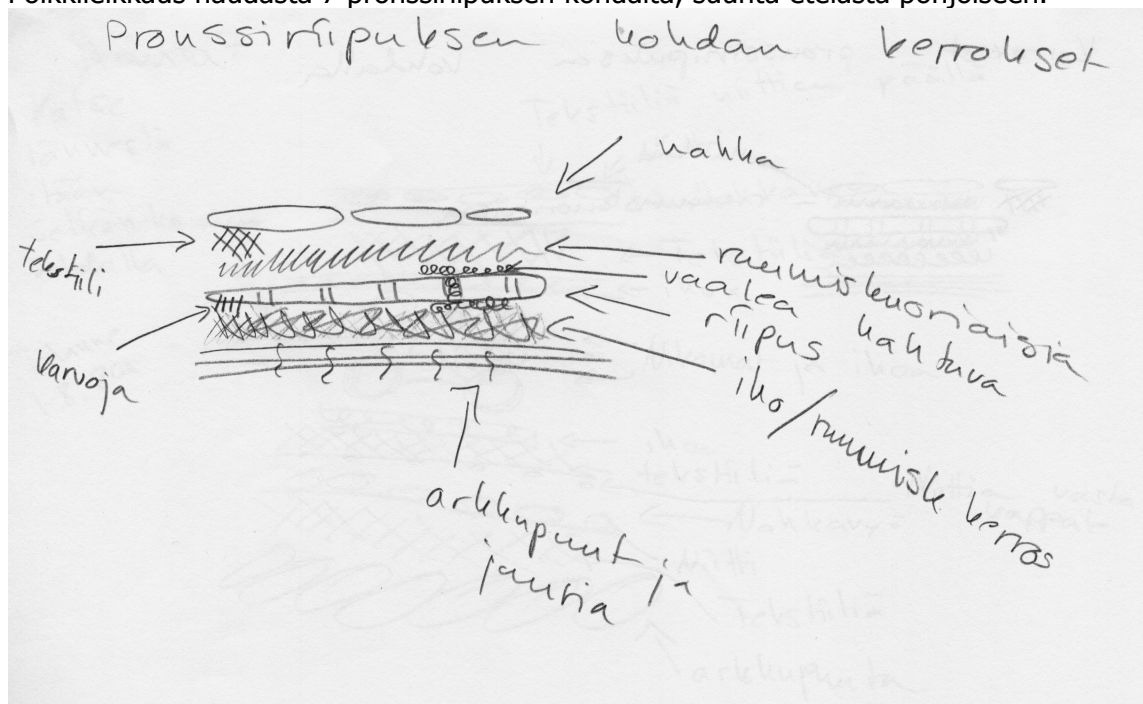 Poikkileikkaus haudasta 7 pronssiriipuksen kohdalta, suunta etelästä pohjoiseen.
Pronssiriipuksen kohdan kerrokset
nahka
tekstiili
ruumiskuoriaisia
vaalea kahtuva
riipus
varvoja
iho/ruumiste kerros
arkkupuut ja